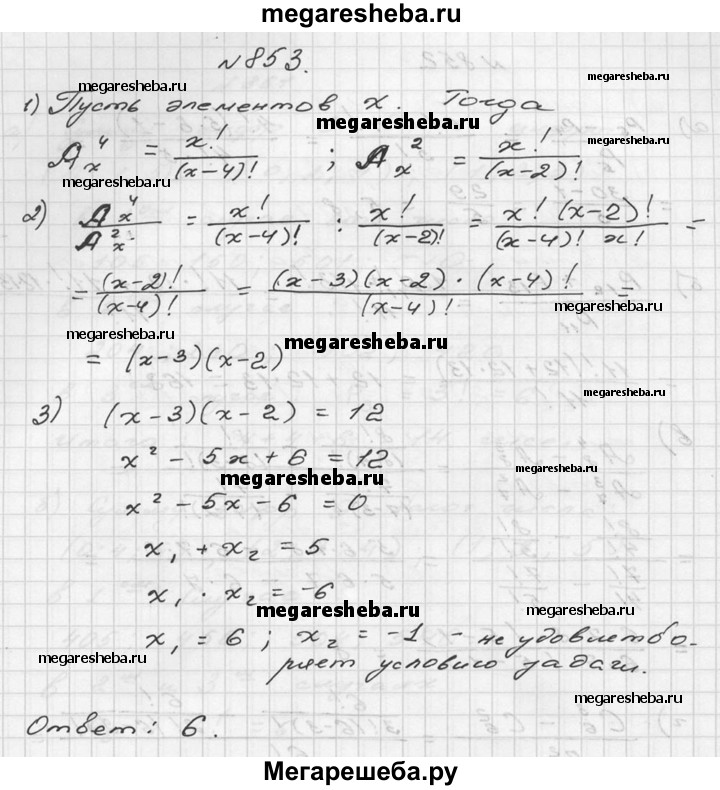 megaresheba.ru
№853.
megaresheba.ru
megaresheba.ru
1) Пусть элементов x. Тогда
megaresheba.ru
A_x^4 = x!/(x-4)! ; A_x^2 = x!/(x-2)!
megaresheba.ru
megaresheba.ru
2) A_x^4/A_x^2 = x!/(x-4)! : x!/(x-2)! = x!(x-2)!/(x-4)! x! =
= (x-2)!/(x-4)! = (x-3)(x-2)·(x-4)!/(x-4)! =
megaresheba.ru
megaresheba.ru
megaresheba.ru
= (x-3)(x-2)
megaresheba.ru
3) (x-3)(x-2) = 12
x² - 5x + 6 = 12
megaresheba.ru
megaresheba.ru
x² - 5x - 6 = 0
x₁ + x₂ = 5
x₁ · x₂ = -6
megaresheba.ru
megaresheba.ru
x₁ = 6 ; x₂ = -1 - не удовлетво-
megaresheba.ru
ряет условию задачи.
megaresheba.ru
Ответ: 6.
Мегарешеба.ру